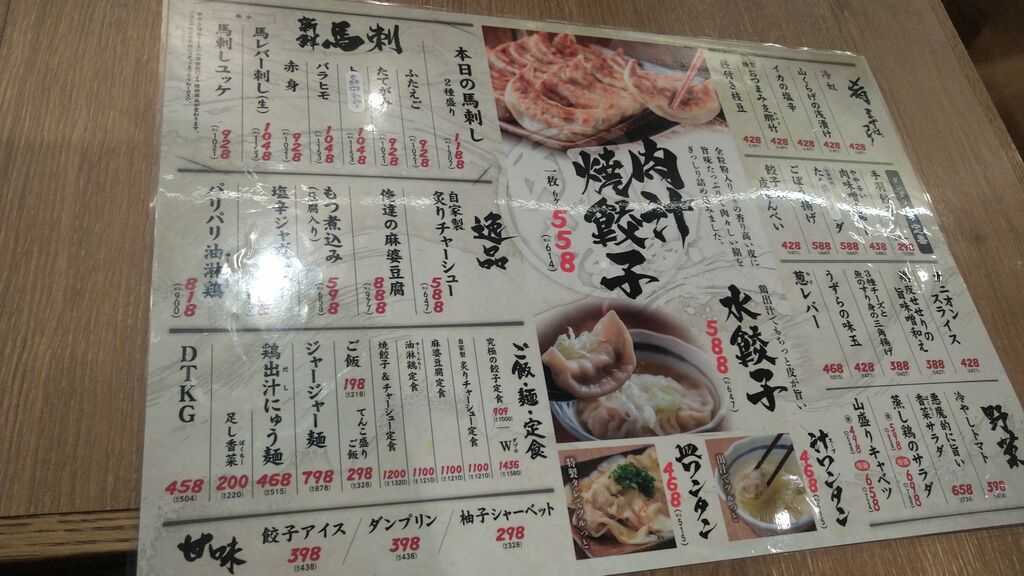 新鮮 馬刺
本日の馬刺し
2種盛り
1188
ふたえご
928
たてがみ
928
1048
バラヒモ
1048
赤身
928
馬レバー刺し(生)
1048
馬刺しユッケ
928
逸品
自家製
炙りチャーシュー
588
(647)
俺達の麻婆豆腐
888
(977)
もつ煮込み
(豆腐入り)
598
パリパリ油淋鶏
818
(900)
ご飯・麺・定食
究極の餃子定食
909
(1000)
Wダブル
1436
(1580)
自家製 炙りチャーシュー定食
1100
(1210)
麻婆豆腐定食
1100
(1210)
油淋鶏定食
1100
(1210)
焼餃子&チャーシュー定食
1200
(1320)
ご飯
198
(218)
てんこ盛りご飯
298
(328)
ジャージャー麺
798
(878)
鶏出汁にゅう麺
468
(515)
足し香菜
200
(220)
DTKG
458
(504)
甘味
餃子アイス
398
(438)
ダンプリン
398
(438)
柚子シャーベット
298
(328)
肉汁焼餃子
一枚 6ヶ
558
(614)
全粒粉入りの香り高い皮に
旨味たっぷりで肉々しい餡を
ぎっしり詰めてみました。
水餃子
鶏出汁でもちっと皮が旨い
588
(647)
皿ワンタン
468
(515)
汁ワンタン
468
(515)
冷奴
428
山くらげの浅漬け
428
イカの塩辛
428
おつまみ支那竹
428
枝付き枝豆
428
手羽
438
588
588
餃子
せんべい
428
オニオンスライス
428
旨味噌和え
388
3種チーズと
魚のすり身の三角揚げ
388
うずらの味玉
428
葱レバー
468
(515)
野菜
冷やしトマト
396
悪魔的に旨い
香菜サラダ
658
蒸し鶏のサラダ
山盛りキャベツ